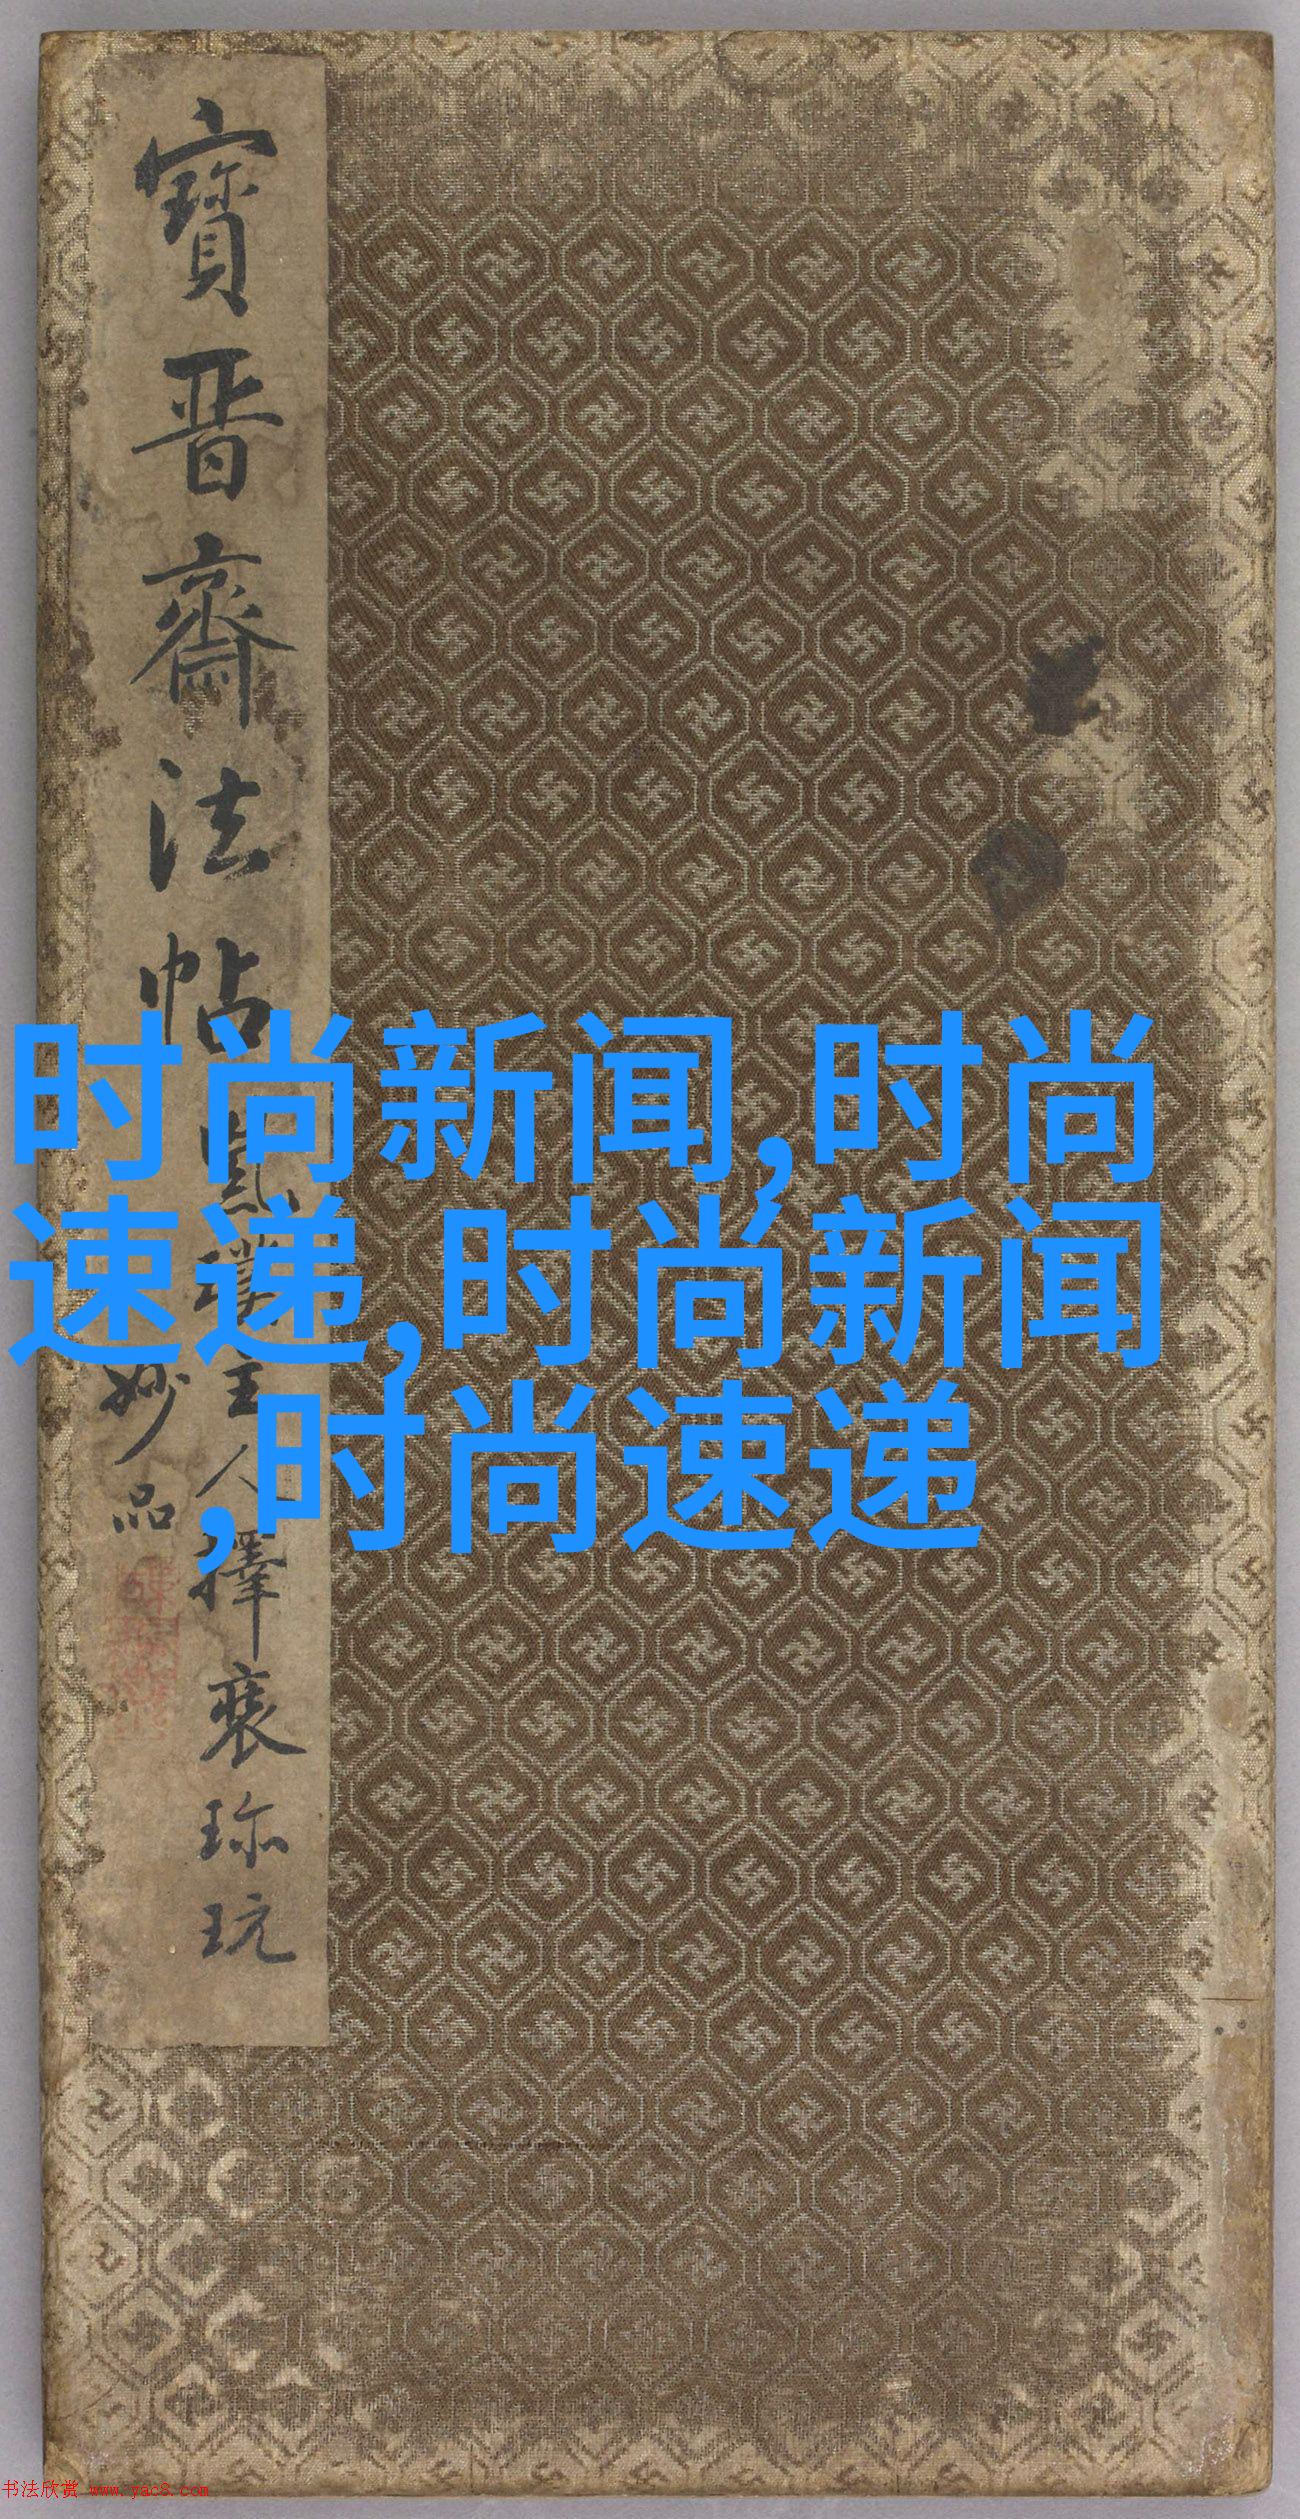 寶晋齋法帖
王人擇襄珎玩
妙品
时尚新闻,时尚
速递,时尚新闻
,时尚速递
书法欣赏 www.yac8.com